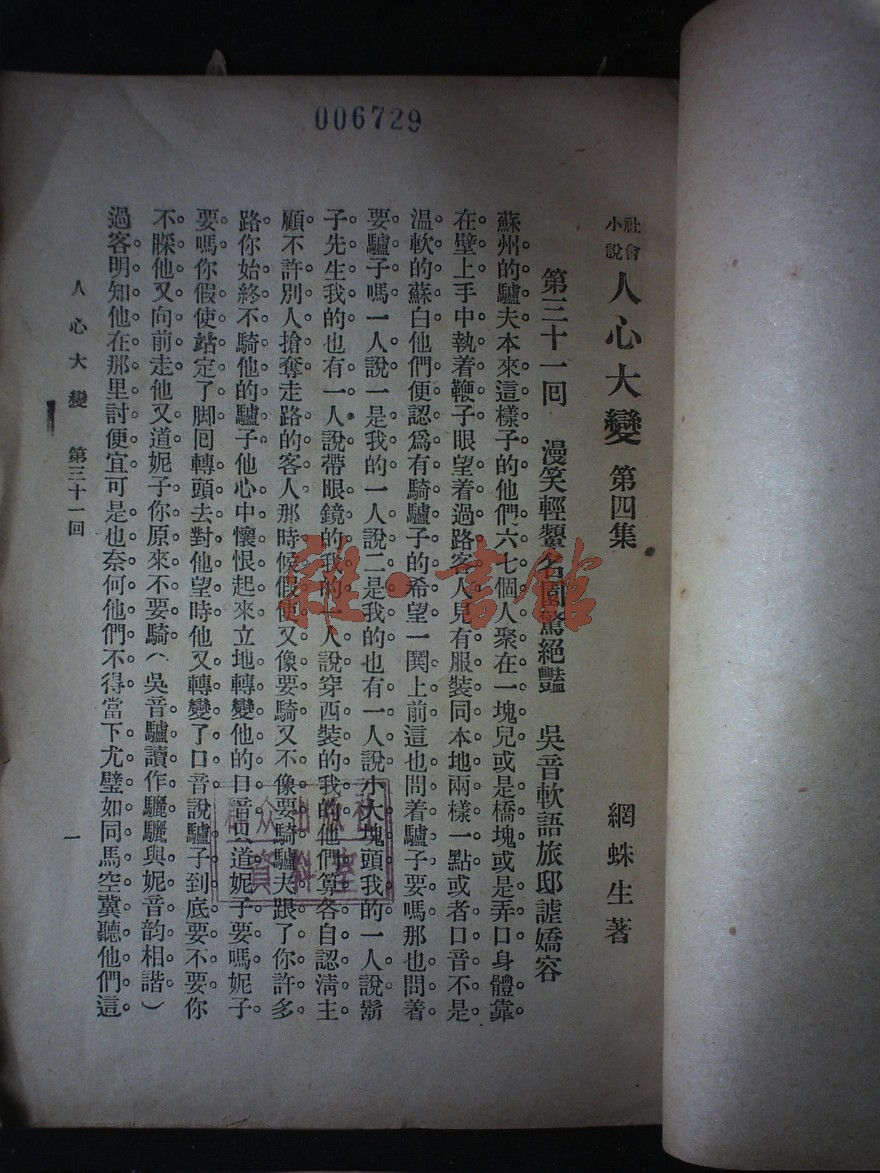 006729
社會小說 人心大變 第四集 網蛛生著
第三十一回 漫笑輕顰名園驚絕豔 吳音軟語旅邸謔嬌容
蘇州的驢夫本來這樣子的他們六七個人聚在一塊兒或是橋塊或是弄口身體靠
在壁上手中執着鞭子眼望着過路客人見有服裝同本地兩樣一點或者口音不是
溫軟的蘇白他們便認爲有騎驢子的希望一鬨上前這也問着驢子要嗎那也問着
要驢子嗎一人說一是我的一人說二是我的也有一人說小大塊頭我的一人說鬍
子先生我的也有一人說帶眼鏡的我的一人說穿西裝的我的他們算各自認淸主
顧不許別人搶奪走路的客人那時候假使又像要騎又不像要騎驢夫跟了你許多
路你始終不騎他的驢子他心中懷恨起來立地轉變他的口音道妮子要嗎妮子
要嗎你假使站定了脚囘轉頭去對他望時他又轉變了口音說驢子到底要不要你
不睬他又向前走他又道妮子你原來不要騎（吳音驢讀作驪驪與妮音韵相諧）
過客明知他在那里討便宜可是也奈何他們不得當下尤璧如同馬空冀聽他們這
人心大變 第三十一回 一
雜·書館
群众出版社
資料室